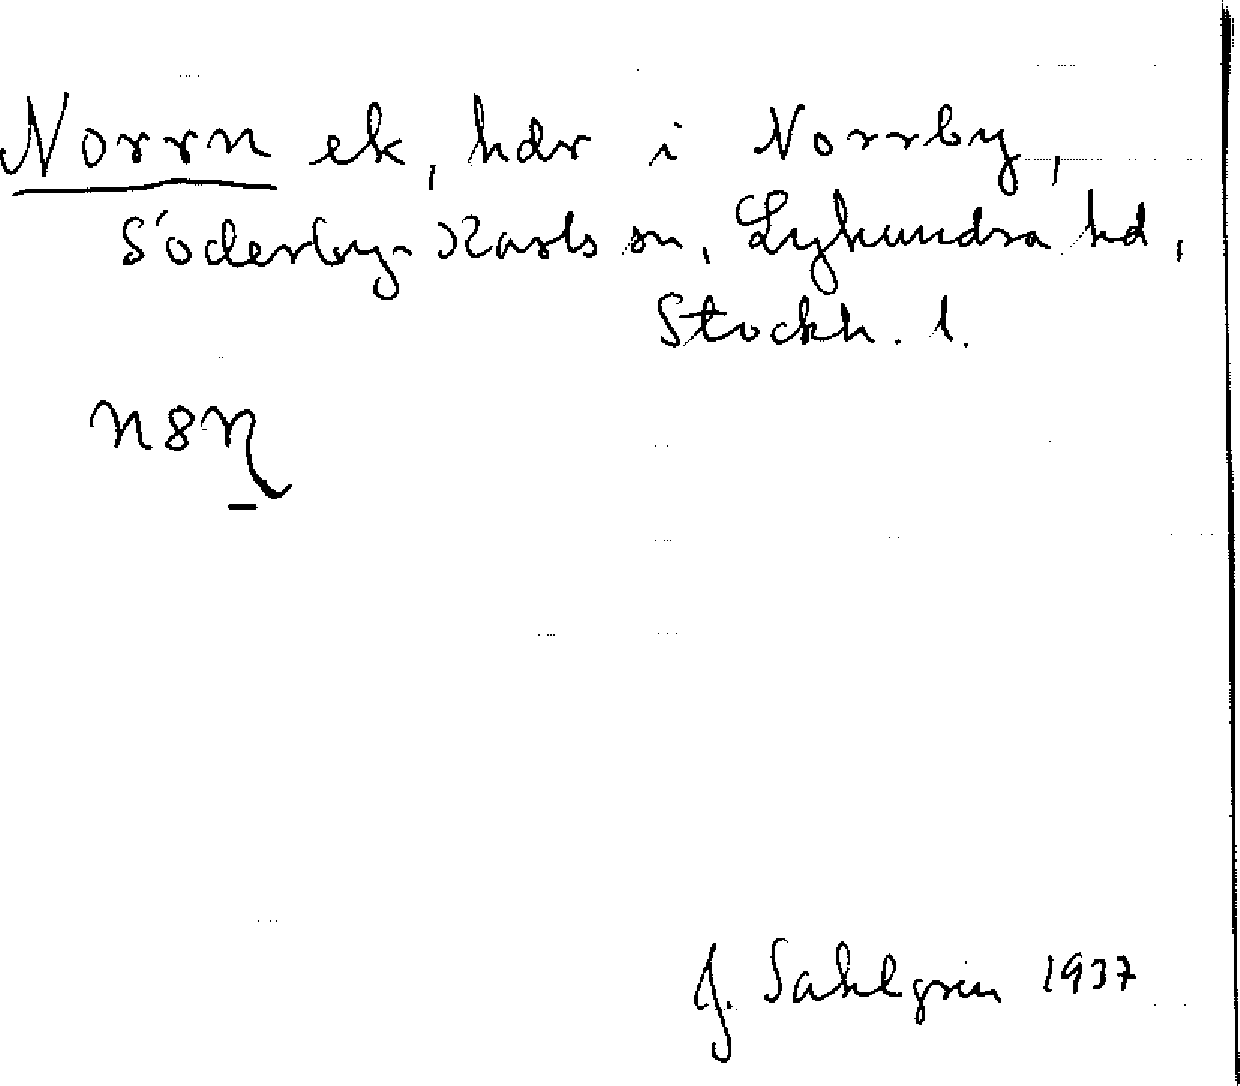 Norrn ek, hdr i Norrby,
Söderby-Karls sn, Lyhundra hd,
Stockh. l.
J. Sahlgren 1937